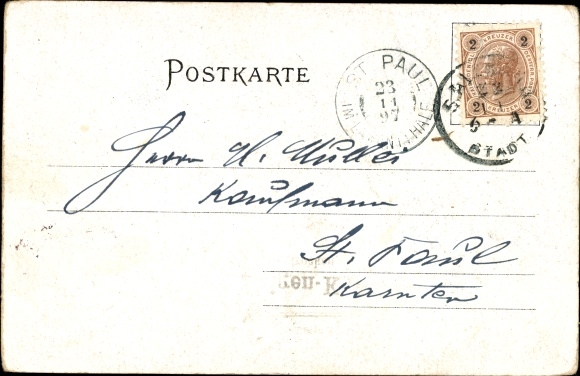 POSTKARTE
ST. PAUL
23
11
97
IM LAVANTTHALE
2 KREUZER 2
2 KREUZER 2
STADT
Herrn H. Mulli
Kaufmann
St. Paul
Kärnten